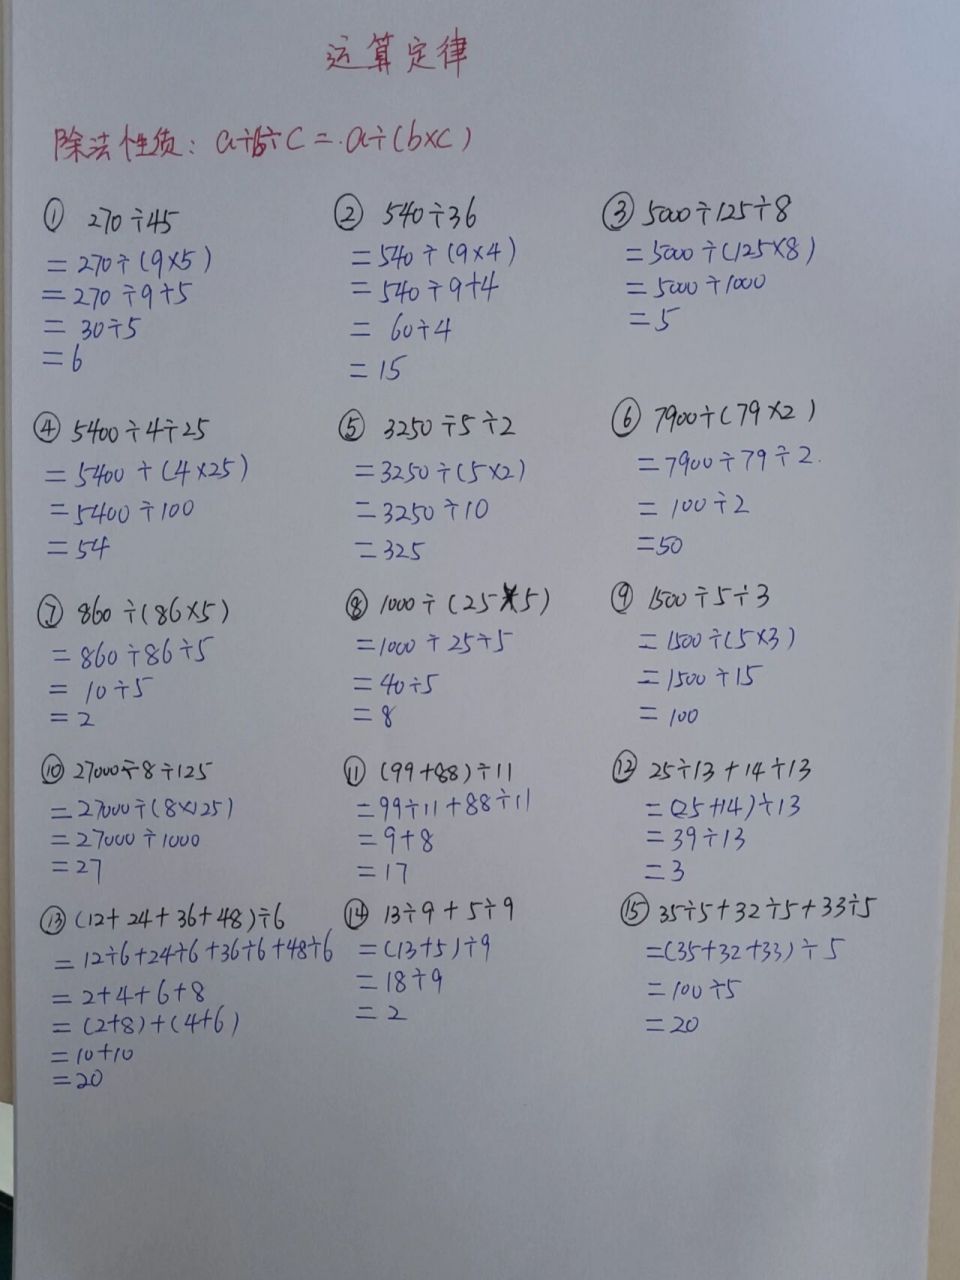 运算定律
除法性质: a÷b÷c=a÷(b×c)
① 270÷45
=270÷(9×5)
=270÷9÷5
=30÷5
=6
② 540÷36
=540÷(9×4)
=540÷9÷4
=60÷4
=15
③ 5000÷125÷8
=5000÷(125×8)
=5000÷1000
=5
④ 5400÷4÷25
=5400÷(4×25)
=5400÷100
=54
⑤ 3250÷5÷2
=3250÷(5×2)
=3250÷10
=325
⑥ 7900÷(79×2)
=7900÷79÷2.
=100÷2
=50
⑦ 860÷(86×5)
=860÷86÷5
=10÷5
=2
⑧ 1000÷(25×5)
=1000÷25÷5
=40÷5
=8
⑨ 1500÷5÷3
=1500÷(5×3)
=1500÷15
=100
⑩ 27000÷8÷125
=27000÷(8×125)
=27000÷1000
=27
⑪ (99+88)÷11
=99÷11+88÷11
=9+8
=17
⑫ 25÷13+14÷13
=(25+14)÷13
=39÷13
=3
⑬ (12+24+36+48)÷6
=12÷6+24÷6+36÷6+48÷6
=2+4+6+8
=(2+8)+(4+6)
=10+10
=20
⑭ 13÷9+5÷9
=(13+5)÷9
=18÷9
=2
⑮ 35÷5+32÷5+33÷5
=(35+32+33)÷5
=100÷5
=20